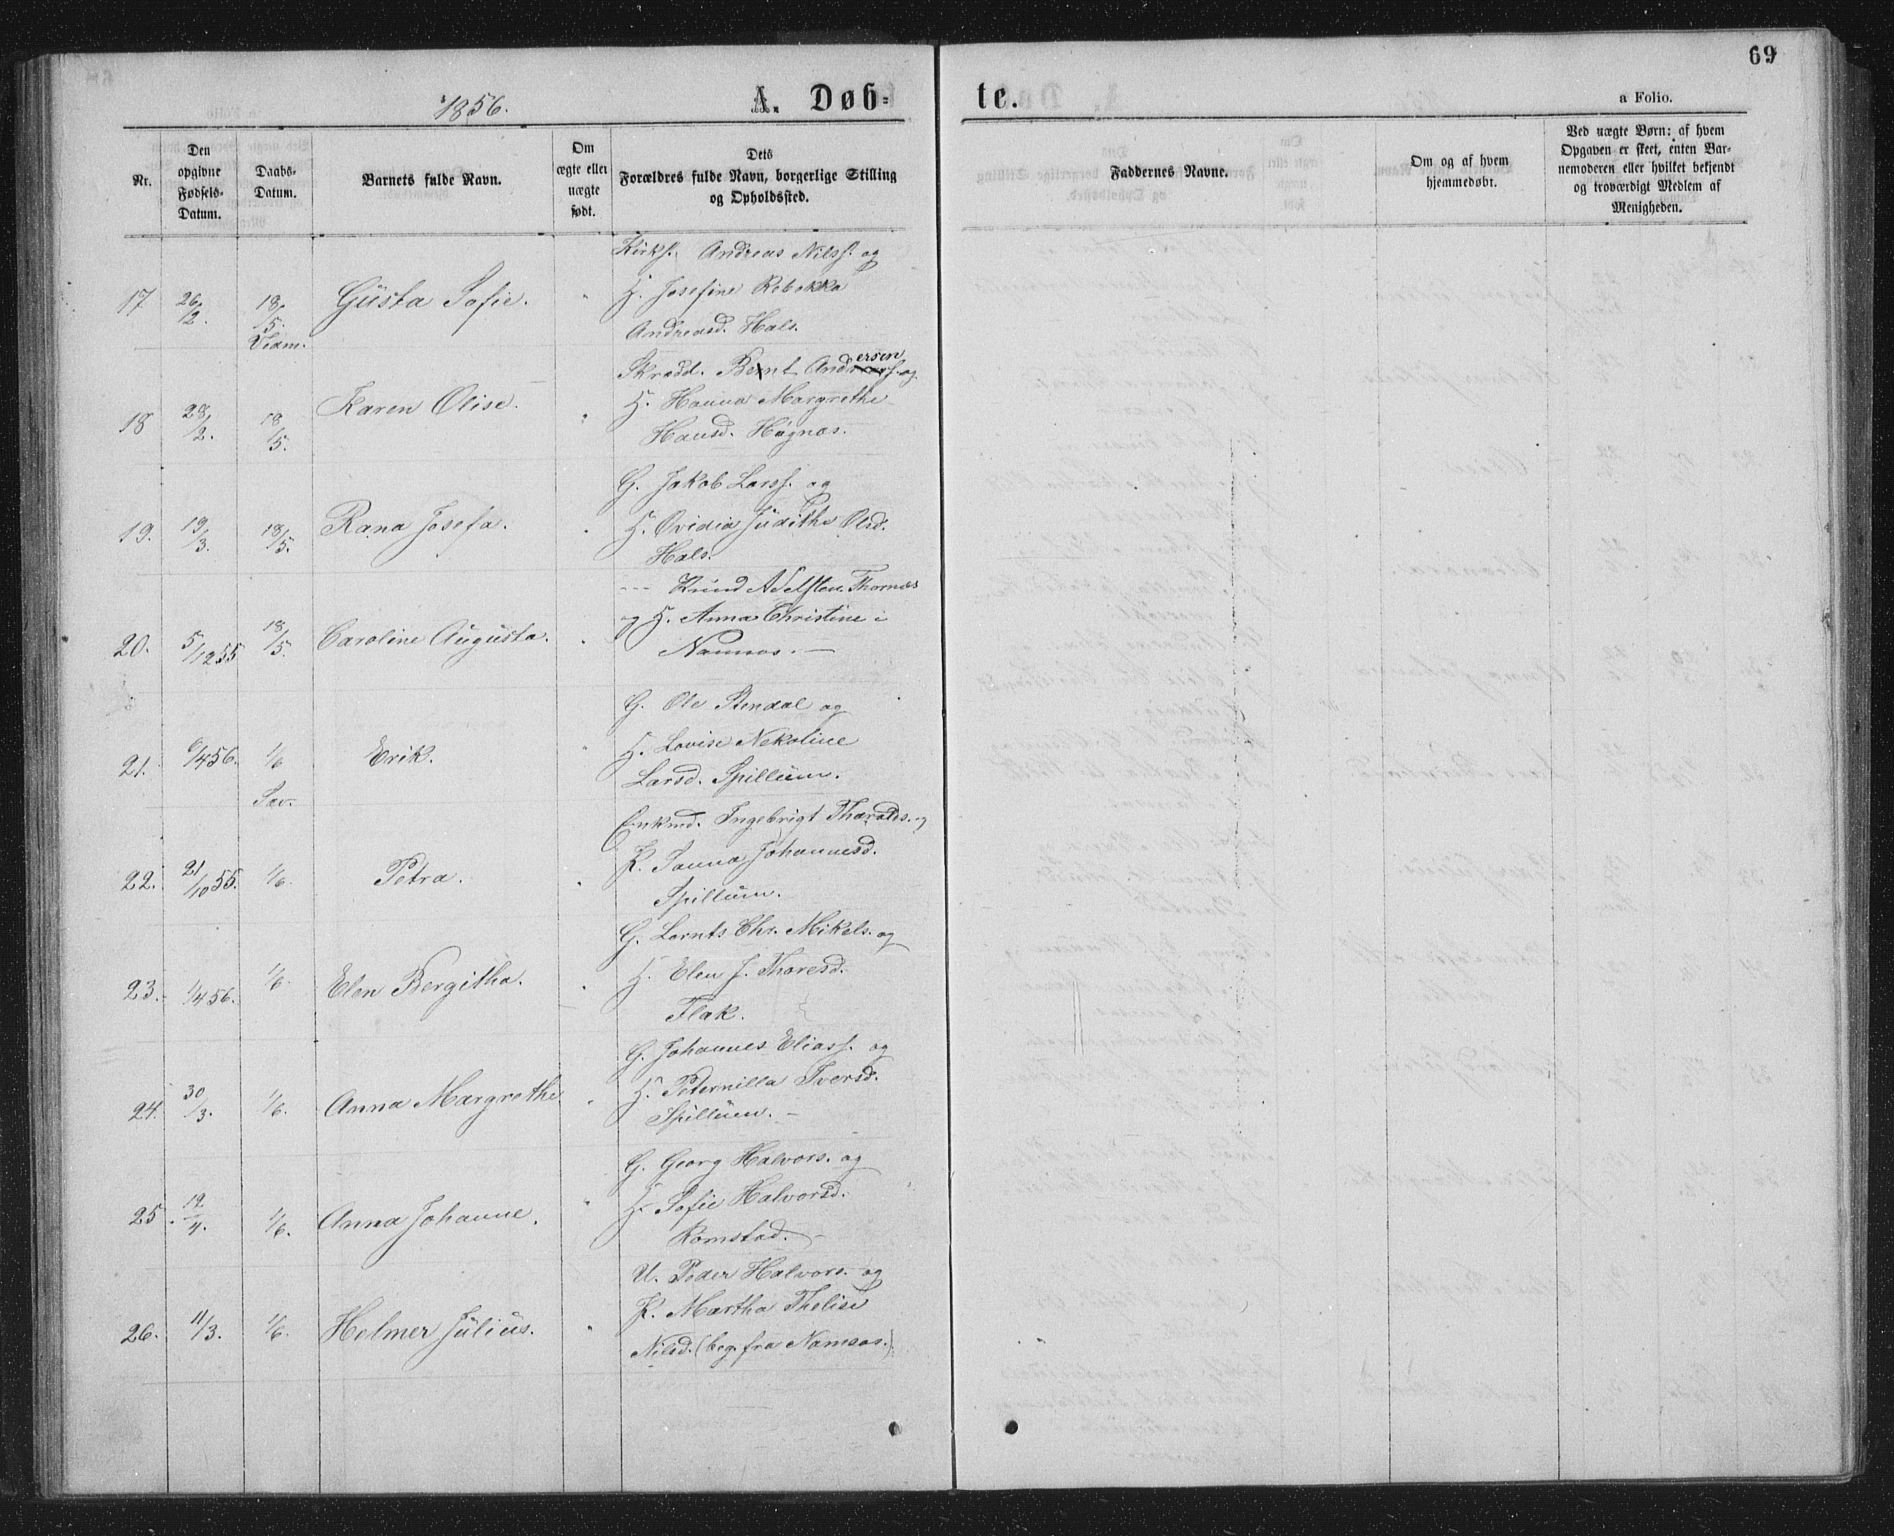 69
1856.
A. Døb-
te.
a Folio.
Nr.
Den
opgivne
Fødsels-
Datum.
Daabs-
Datum.
Barnets fulde Navn.
Om
ægte eller
uægte
født.
Dets
Forældres fulde Navn, borgerlige Stilling
og Opholdssted.
Faddernes Navne.
Om og af hvem
hjemmedøbt.
Ved uægte Børn: af hvem
Opgaven er skeet, enten Bar-
nemoderen eller hvilket bekjendt
og troværdigt Medlem af
Menigheden.
Andreas Nilss. og
17 26/2. 18/5. Gusta Sofie. H. Josefine Rebekka
Andreasd. Hals.
Skradd. Bernt Andersen og
18 28/2. 18/5. Karen Olise. H. Hanna Margrethe
Hansd. Høgnæs.
G. Jakob Larss. og
19. 19/3. 18/5. Rana Josefa. H. Ovidia Judithe Olsd.
Hals.
--- Knud Adelsten Thornæs
og H. Anna Christine i
20. 5/12 55 18/5. Caroline Augusta. Namsos. —
G. Ole Stendal og
21. 6/4 56. 1/6 Erik. H. Lovise Nekoline
Larsd. Spillum.
Sæv.
Enkmd. Ingebrigt Tharalds. og
22. 21/10 55. 1/6. Petra. P. Sanna Johannesd.
Spillum.
G. Lornts Chr. Mikels. og
23. 1/4 56. 1/6. Elen Bergitha. H. Elen J. Thoresd.
Flak.
G. Johannes Eliass. og
24. 30/3. 1/6. Anna Margrethe H. Peternilla Iversd.
Spillum. —
G. Georg Halvors. og
25. 12/4. 1/6. Anna Johanne. H. Sofie Halvorsd.
Romstad. —
U. Peder Halvors. og
26. 11/3. 1/6. Helmer Julius. P. Martha Thelise
Nilsd. (beg. fra Namsos.)